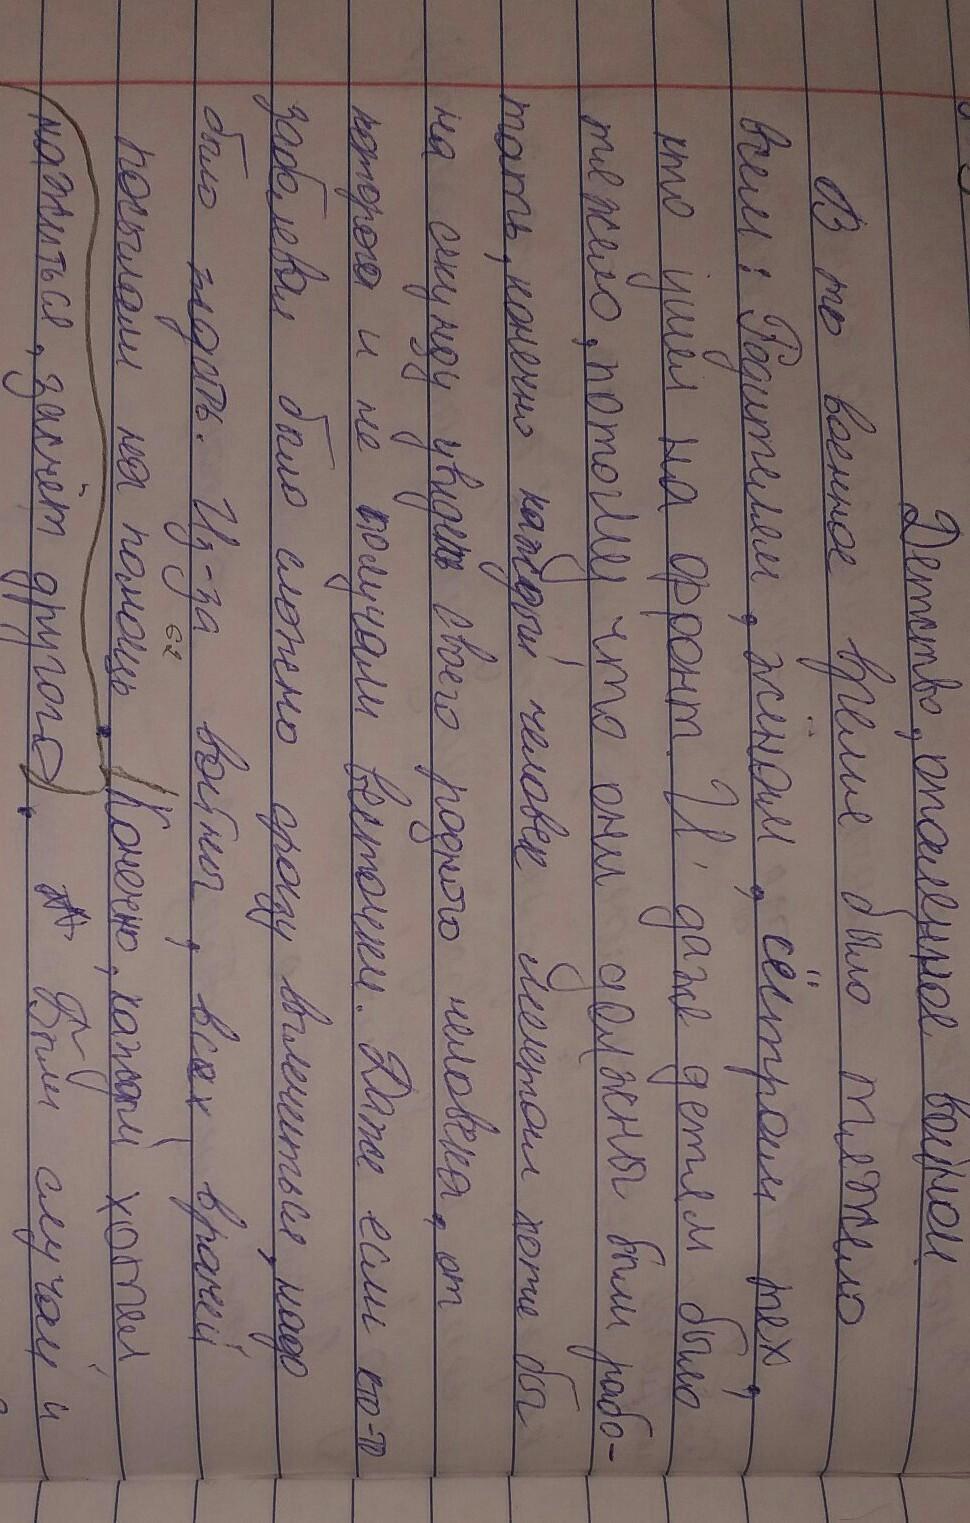 Детство, опаленное войной
В то военное время было тяжело
всем: Родителям, жёнам, сёстрам тех,
кто ушел на фронт. И даже детям было
тяжело, потому что они должны были рабо-
тать, конечно каждый человек мечтал хотя бы
на секунду увидеть своего родного человека, от
которого и не получали весточки. Даже если кто-то
заболевал было сложно сразу вылечиться, надо
было ждать. Из-за войны, всех врачей
посылали на помощь. (Конечно, каждый хотел